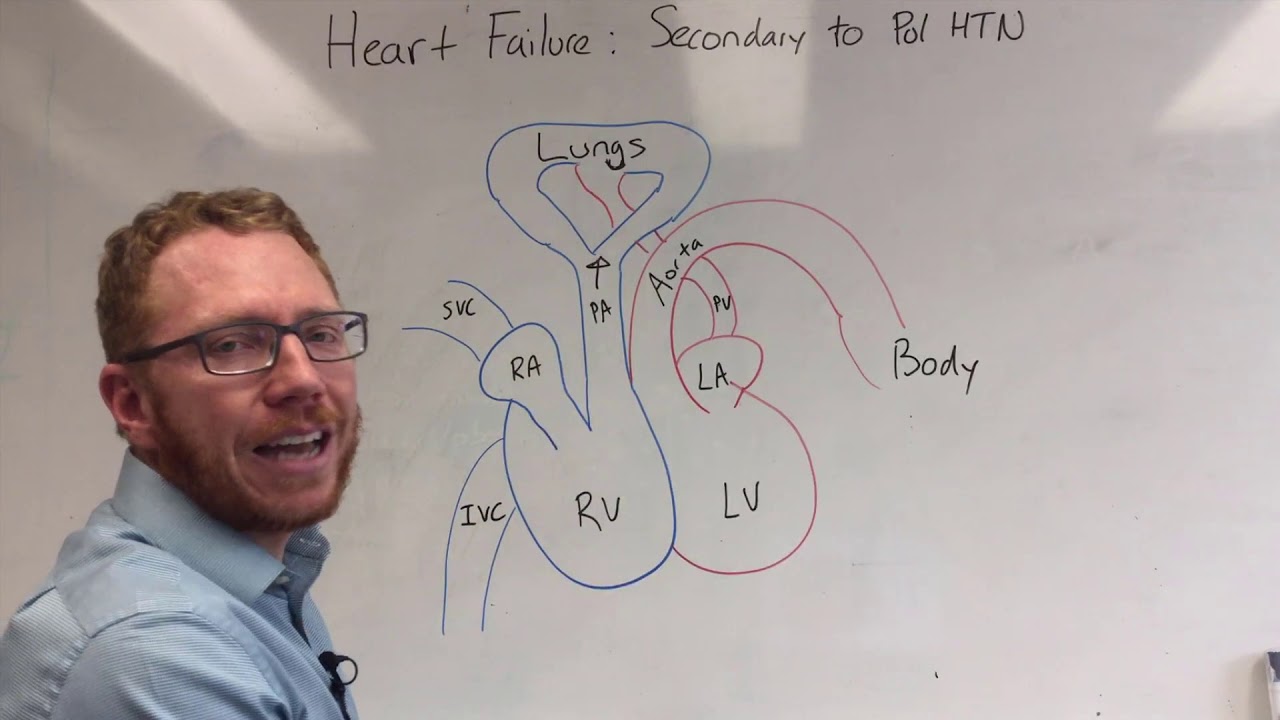 Heart Failure: Secondary to Pol HTN
Lungs
Aorta
SVC
PA
PV
RA
LA
Body
RV
LV
IVC